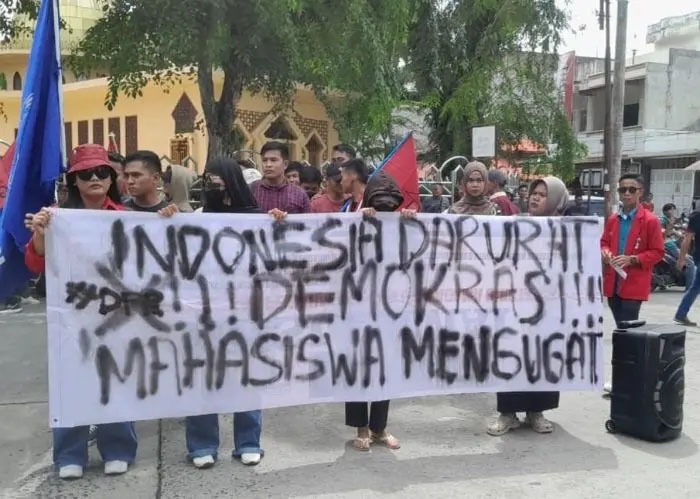 INDONESIA DARURAT
#DPR!!! DEMOKRASI!!!
MAHASISWA MENGUGAT